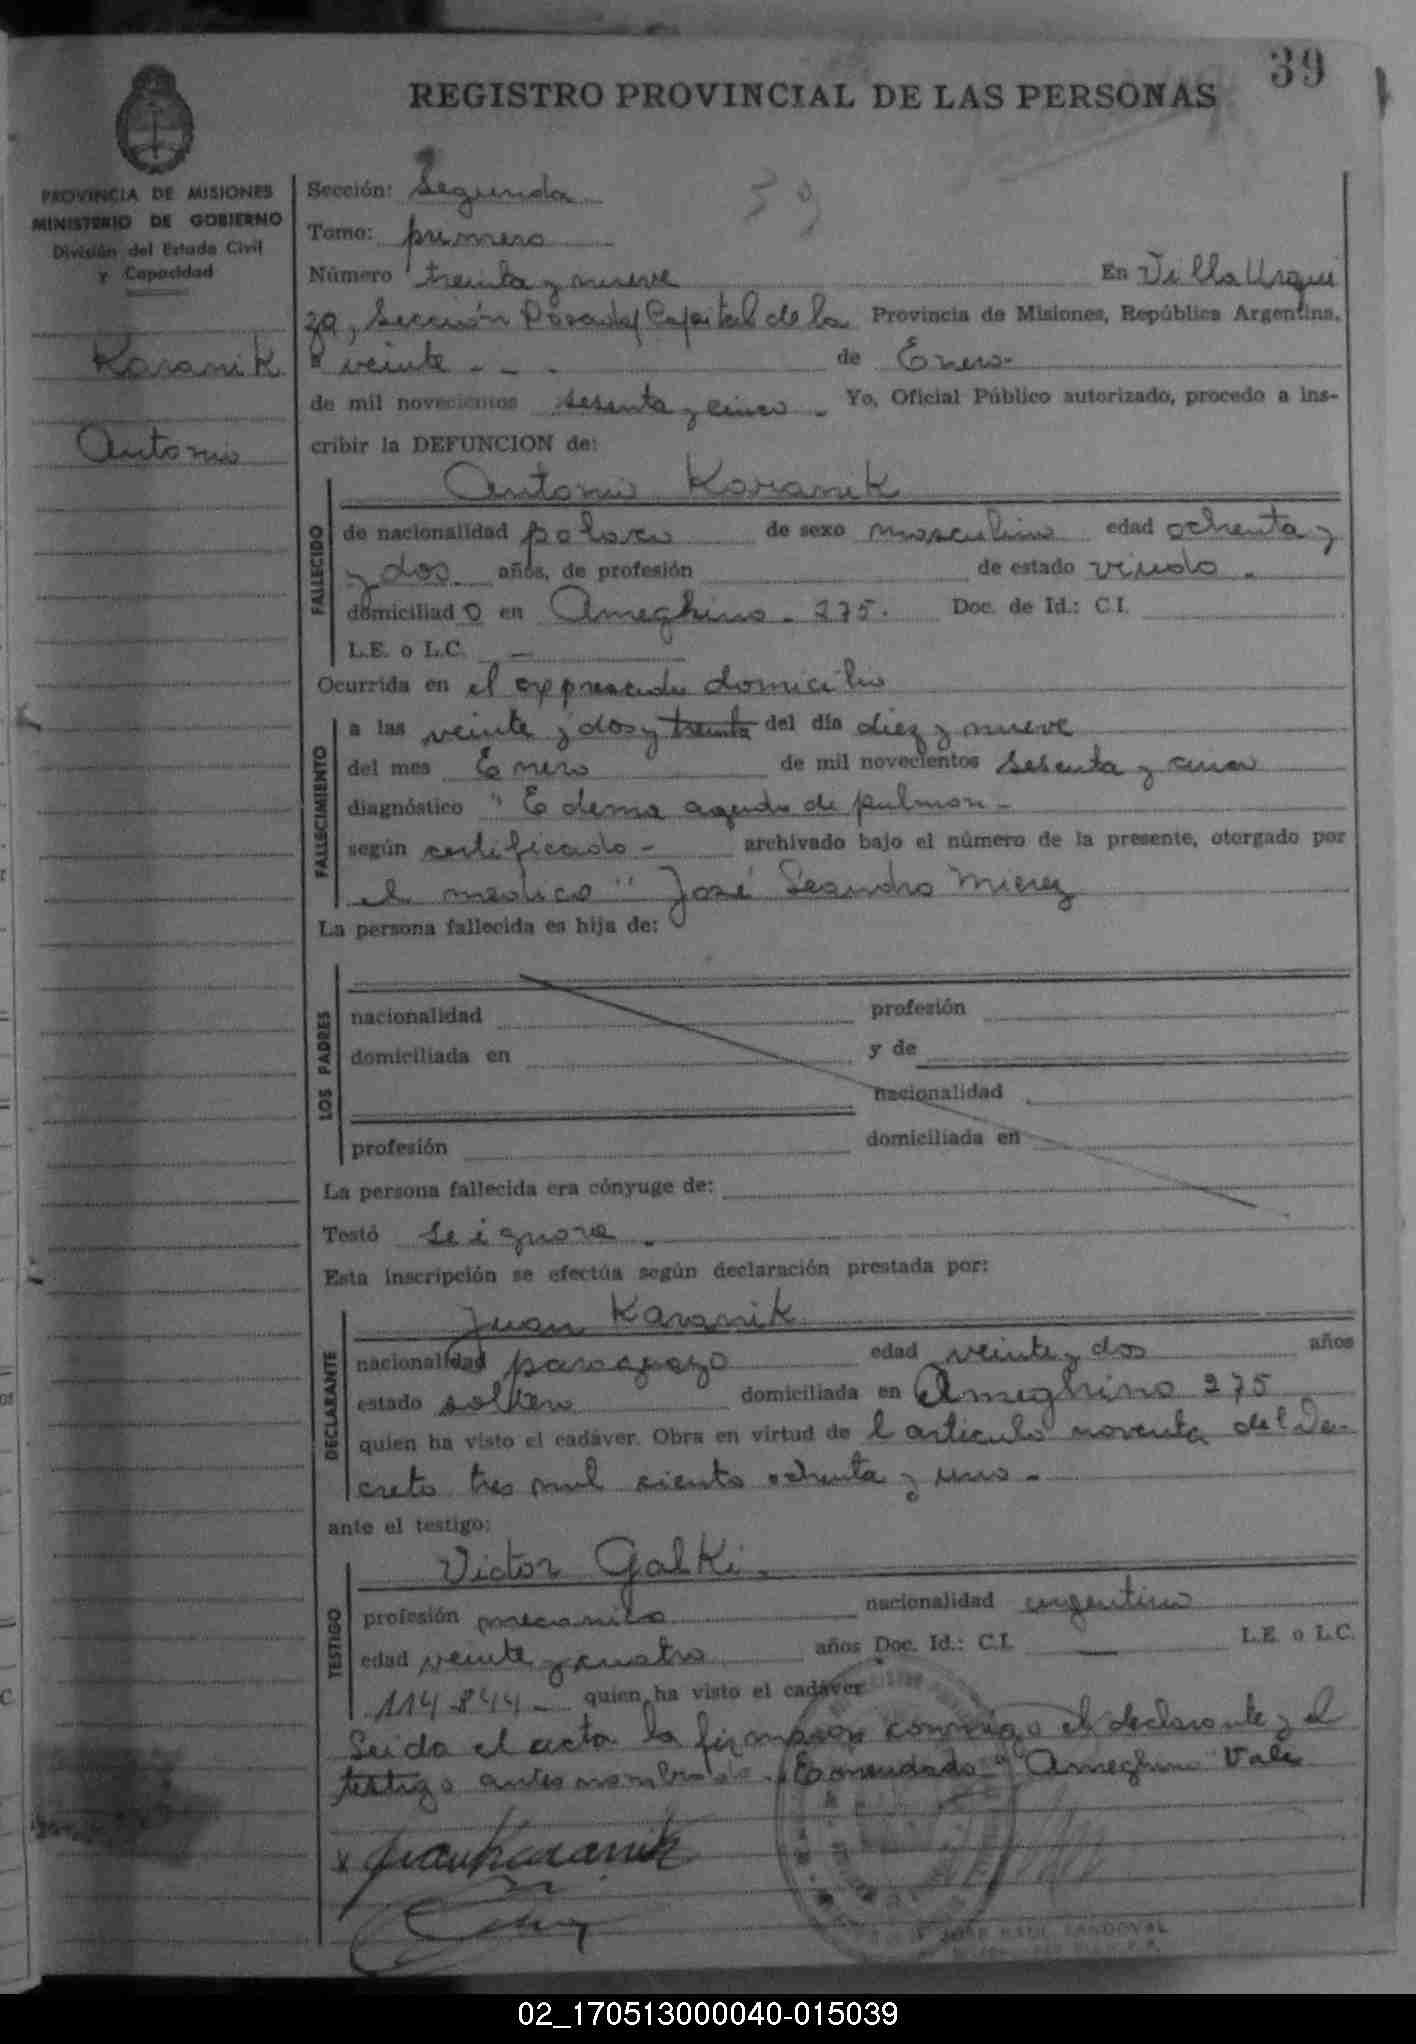 39
REGISTRO PROVINCIAL DE LAS PERSONAS
PROVINCIA DE MISIONES
MINISTERIO DE GOBIERNO
División del Estado Civil
y Capacidad
Karanik
Antonio
39
Sección: Segunda
Tomo: primero
Número treinta y nueve En Villa Urqui
za, Sección Posadas Capital de la Provincia de Misiones, República Argentina,
a veinte - - . de Enero-
de mil novecientos sesenta y cinco - Yo, Oficial Público autorizado, procedo a ins-
cribir la DEFUNCION de:
Antonio Karanik
FALLECIDO
de nacionalidad polaco de sexo masculino edad ochenta y
y dos años, de profesión de estado viudo -
domiciliado en Ameghino - 275. Doc. de Id.: C.I.
L.E. o L.C. —
Ocurrida en el expresado domicilio
FALLECIMIENTO
a las veinte y dos y treinta del día diez y nueve
del mes Enero de mil novecientos sesenta y cinco
diagnóstico "Edema agudo de pulmon -
según certificado - archivado bajo el número de la presente, otorgado por
el medico " José Leandro Mierez
La persona fallecida es hija de:
LOS PADRES
nacionalidad profesión
domiciliada en y de
nacionalidad
profesión domiciliada en
La persona fallecida era cónyuge de:
Testó se ignora -
Esta inscripción se efectúa según declaración prestada por:
Juan Karanik
DECLARANTE
nacionalidad paraguayo edad veinte y dos años
estado soltero domiciliada en Ameghino 275
quien ha visto el cadáver. Obra en virtud de l articulo noventa del De-
creto tres mil ciento ochenta y uno -
ante el testigo:
Victor Galki.
TESTIGO
profesión mecanico nacionalidad argentino
edad veinte y cuatro años Doc. Id.: C.I. — L.E. o L.C.
114.844 - quien ha visto el cadáver
Leida el acta la firmaron conmigo el declarante y el
testigo antes nombrado. Enmendado "Ameghino" Vale
x Juan Karanik
JOSE RAUL SANDOVAL
02_170513000040-015039